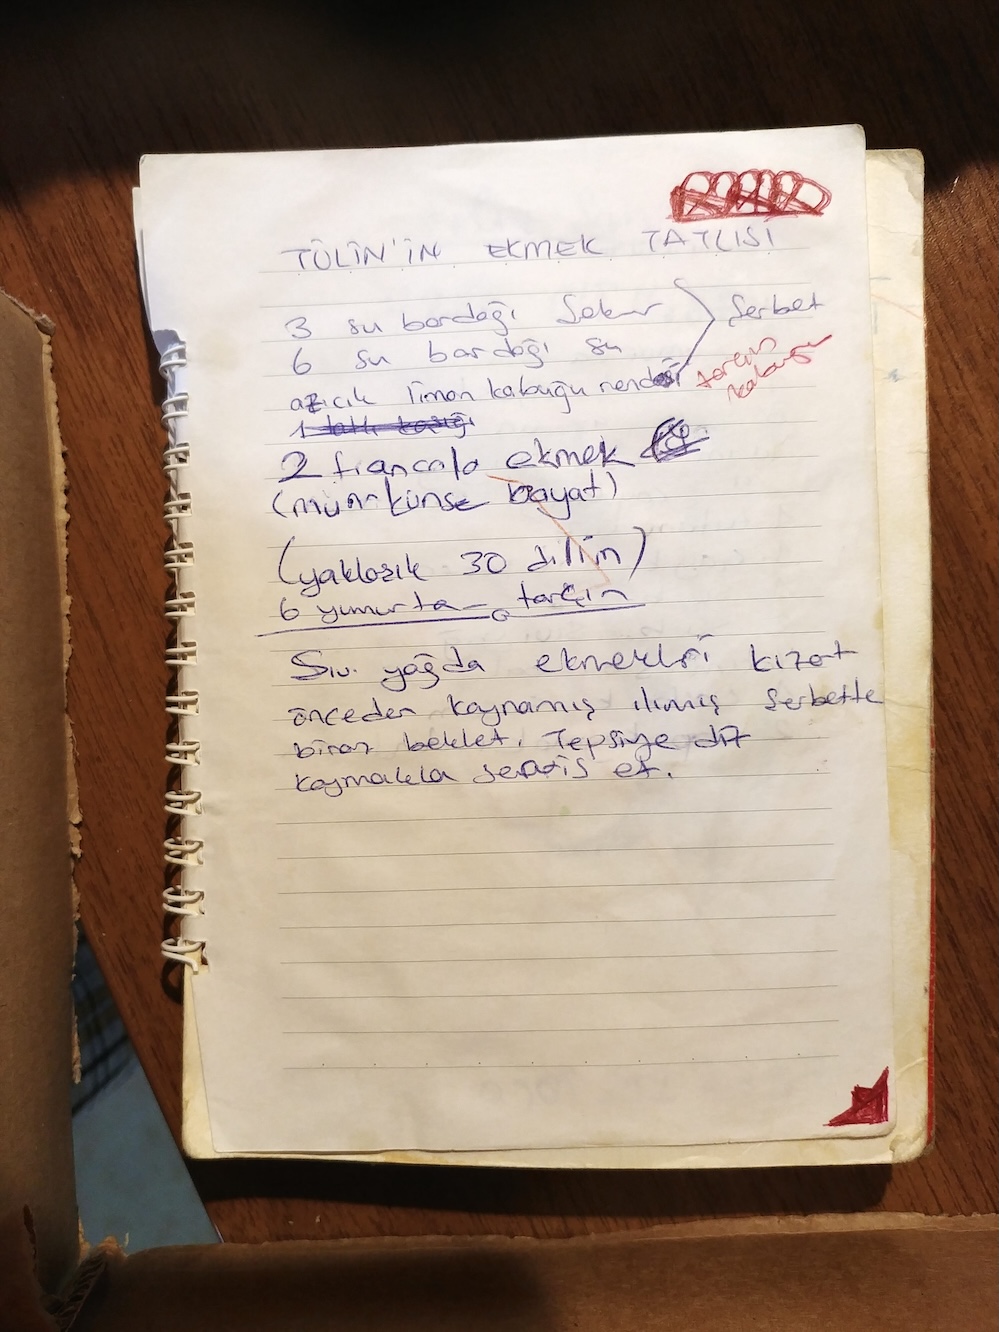 TÜLİN'İN EKMEK TATLISI
3 su bardağı şeker
Şerbet
6 su bardağı su
azıcık limon kabuğu rendesi
tarçın
kabuğu
2 francala ekmek
(mümkünse bayat)
(yaklaşık 30 dilim)
6 yumurta tarçın
Sıvı yağda ekmekleri kızart
önceden kaynamış ılımış şerbette
biraz beklet. Tepsiye diz
kaymakla servis et.